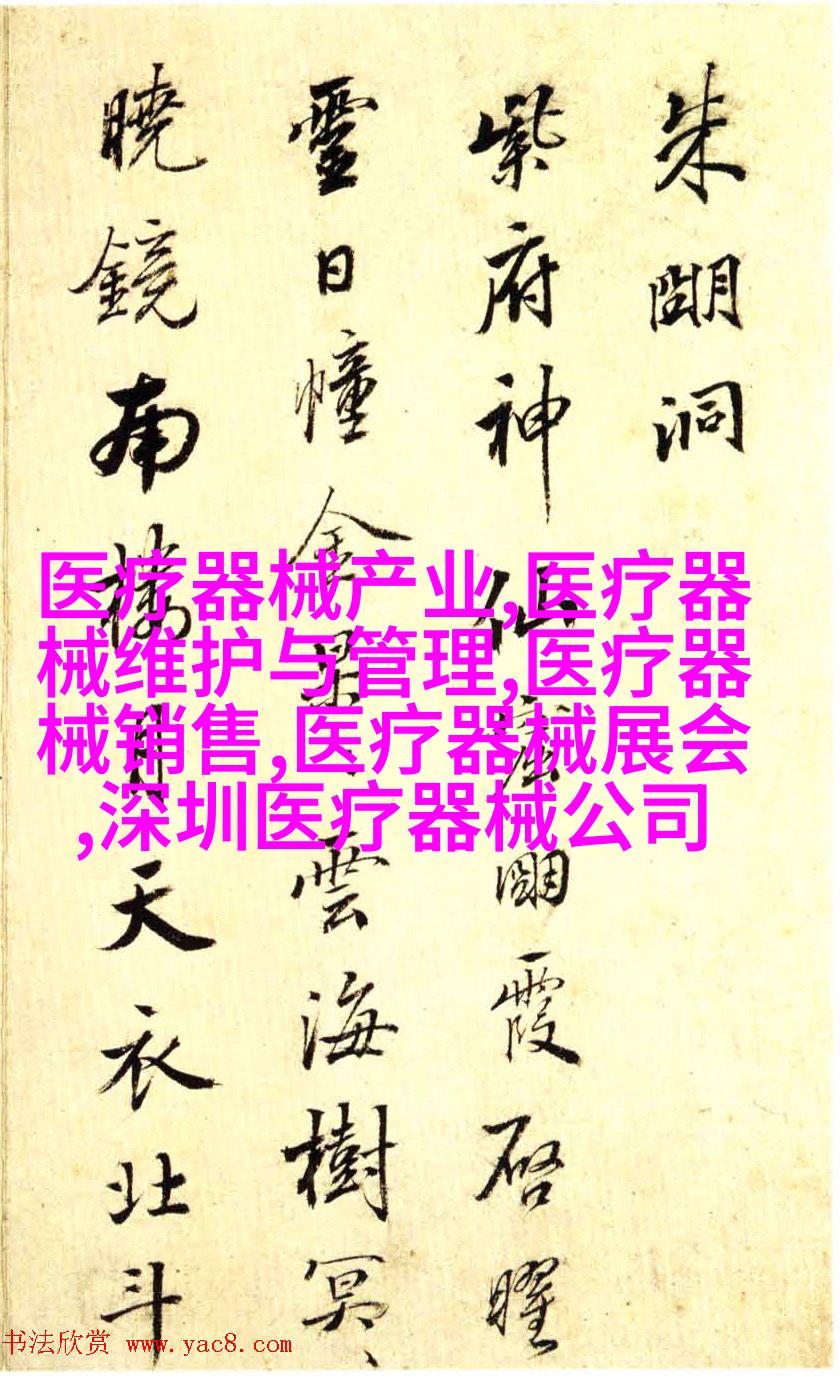 朱朙洞
紫府神仙窟朙霞启曜
霊日幢金景雲海樹冥、
曉鏡南月天衣北斗
医疗器械产业,医疗器
械维护与管理,医疗器
械销售,医疗器械展会
,深圳医疗器械公司
书法欣赏 www.yac8.com